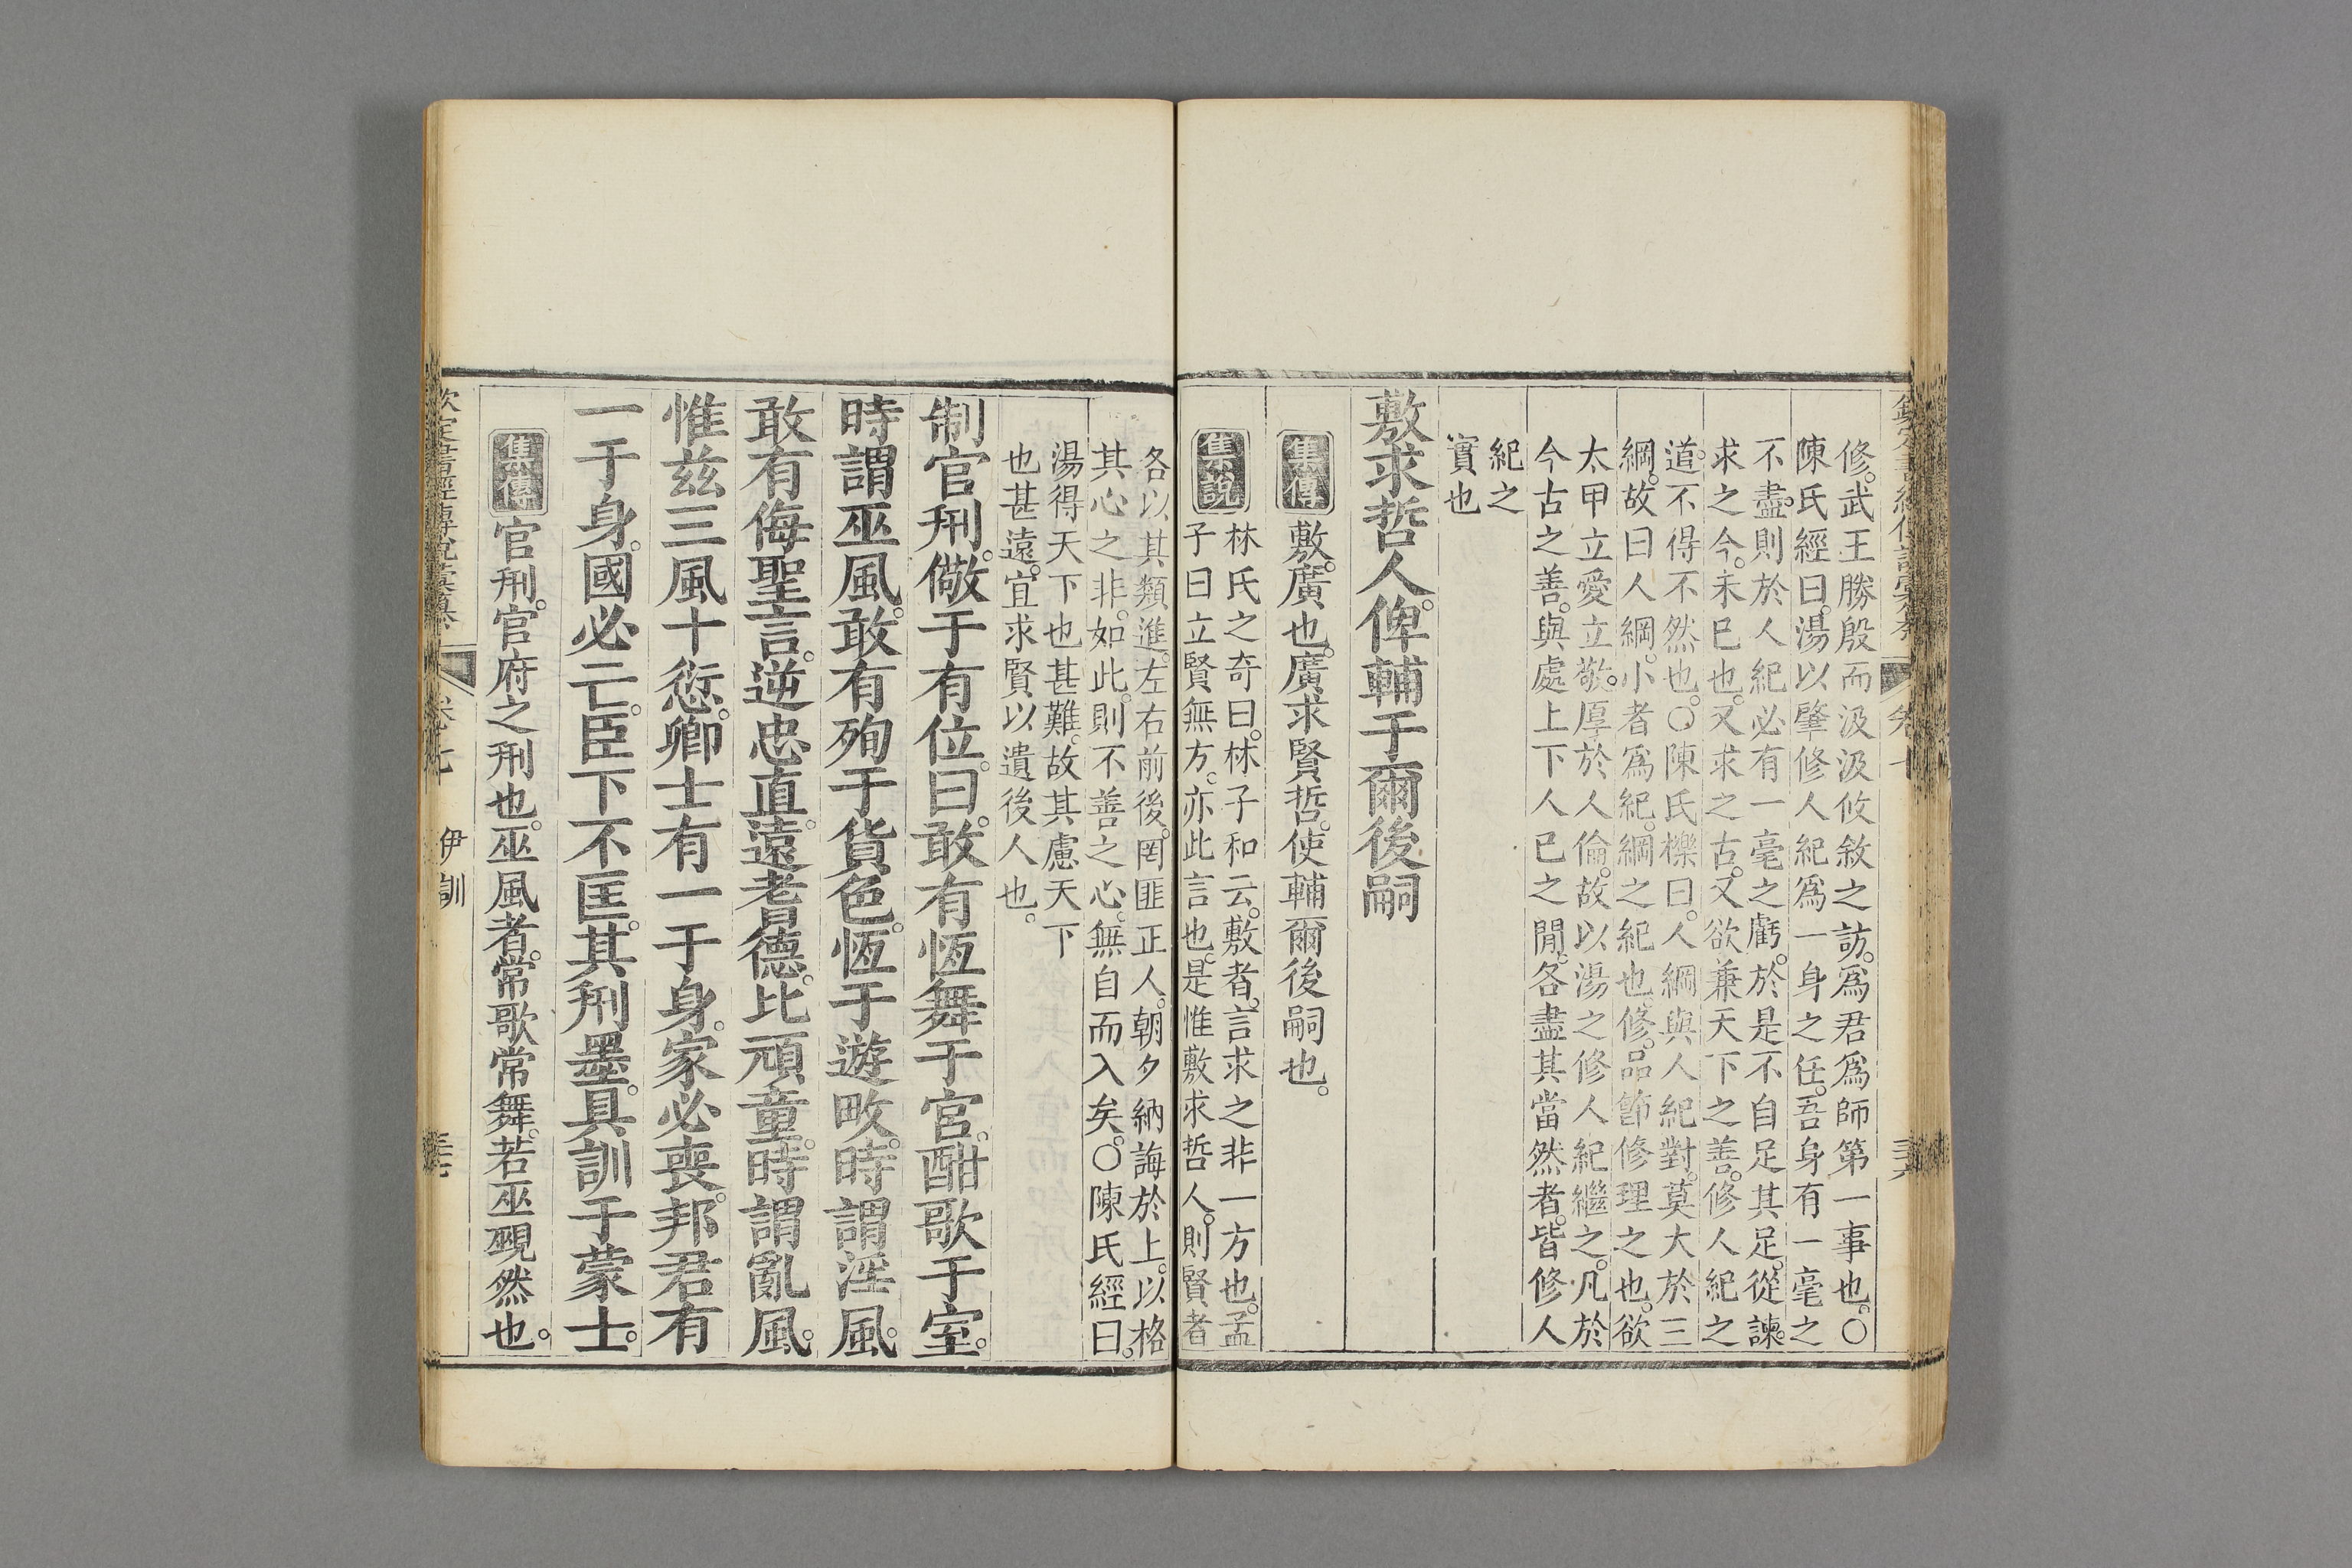 修。武王勝殷而汲汲攸敘之訪。爲君爲師第一事也。〇
陳氏經曰。湯以肇修人紀爲一身之任。吾身有一毫之
不盡。則於人紀必有一毫之虧。於是不自足其足。從諫。
求之今。未已也。又求之古。又欲兼天下之善。修人紀之
道。不得不然也。〇陳氏櫟曰。人綱與人紀對。莫大於三
綱。故曰人綱。小者爲紀。綱之紀也。修。品節修理之也。欲
太甲立愛立敬。厚於人倫。故以湯之修人紀繼之。凡於
今古之善。與處上下人已之閒。各盡其當然者。皆修人
紀之
實也
敷求哲人。俾輔于爾後嗣
集傳 敷。廣也。廣求賢哲。使輔爾後嗣也。
集說 林氏之奇曰。林子和云。敷者。言求之非一方也。孟
子曰立賢無方。亦此言也。是惟敷求哲人。則賢者
各以其類進。左右前後。罔匪正人。朝夕納誨於上。以格
其心之非。如此。則不善之心。無自而入矣。〇陳氏經曰。
湯得天下也甚難。故其慮天下
也甚遠。宜求賢以遺後人也。
制官刑。儆于有位。曰。敢有恆舞于宮。酣歌于室。
時謂巫風。敢有殉于貨色。恆于遊畋。時謂淫風。
敢有侮聖言。逆忠直。遠耆德。比頑童。時謂亂風。
惟茲三風十愆。卿士有一于身。家必喪。邦君有
一于身。國必亡。臣下不匡。其刑墨。具訓于蒙士。
集傳 官刑。官府之刑也。巫風者。常歌常舞。若巫覡然也。
欽定書經傳說彙纂 卷七 伊訓 三七